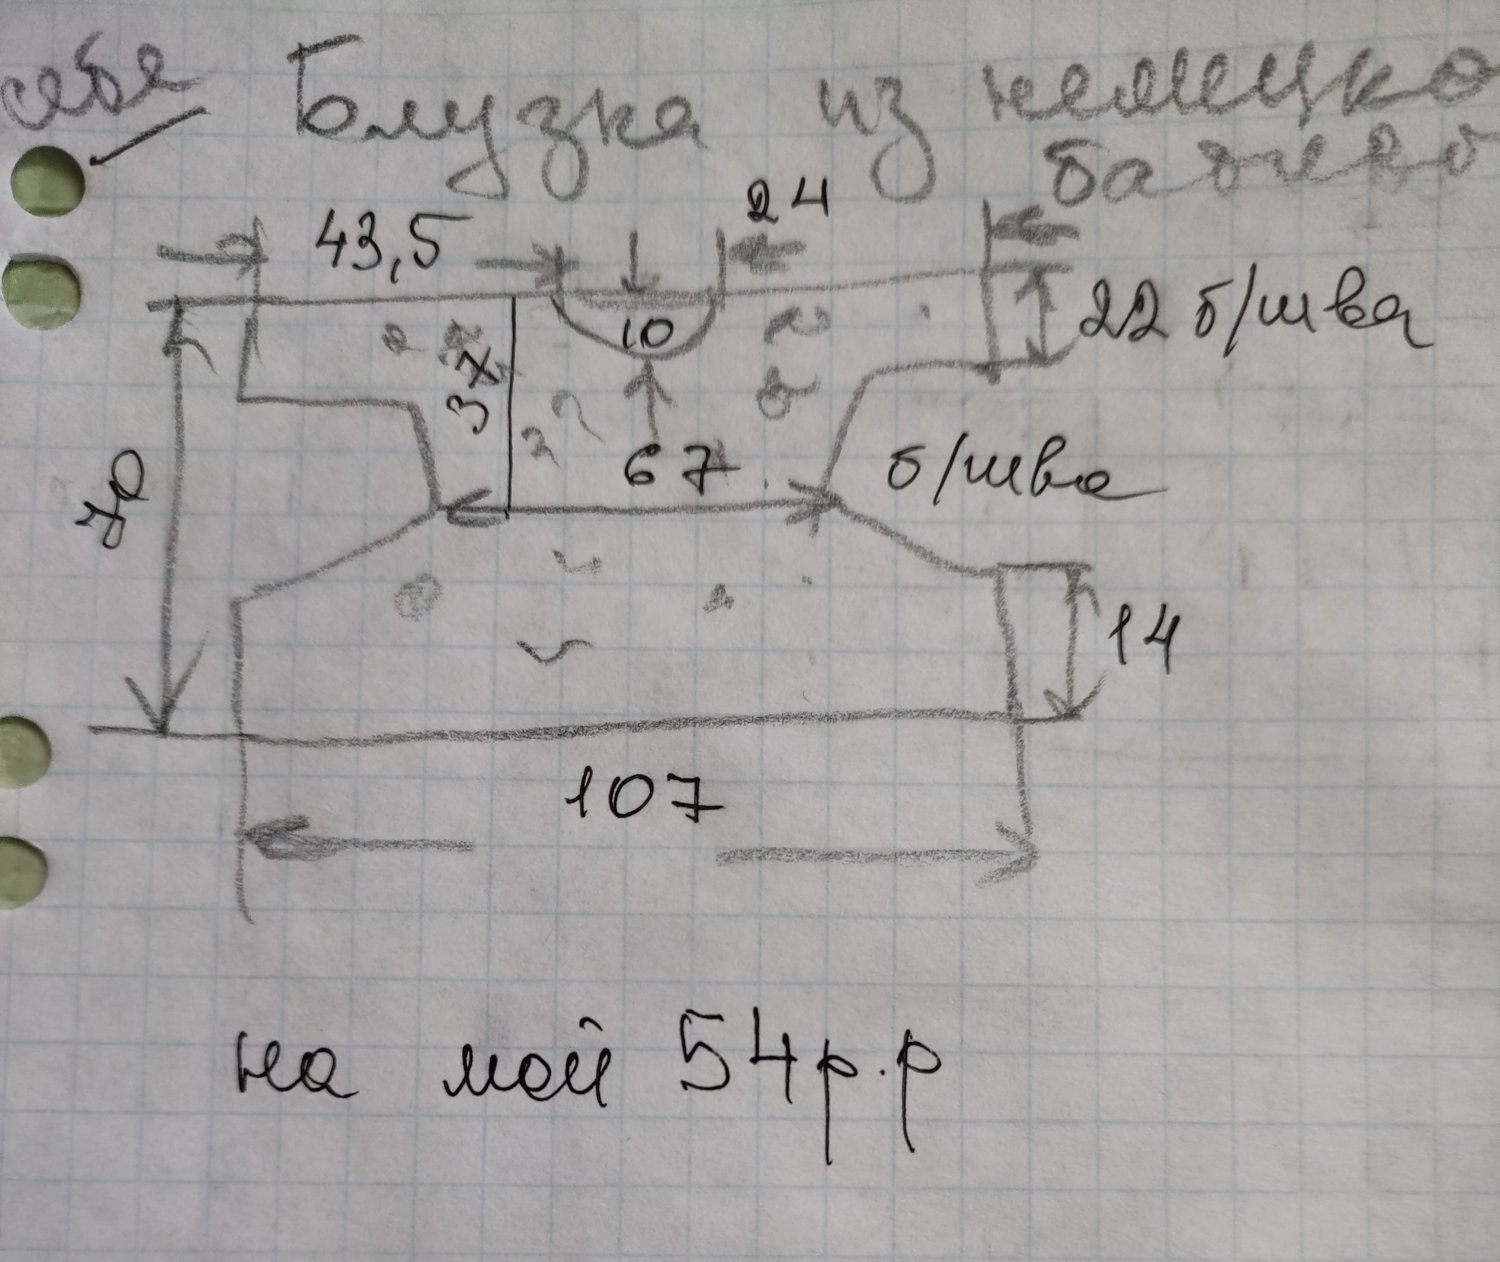 себе Блузка из немецко
батисто
43,5
24
10
22 б/шва
37
67
б/шва
70
14
107
на мой 54 р.р